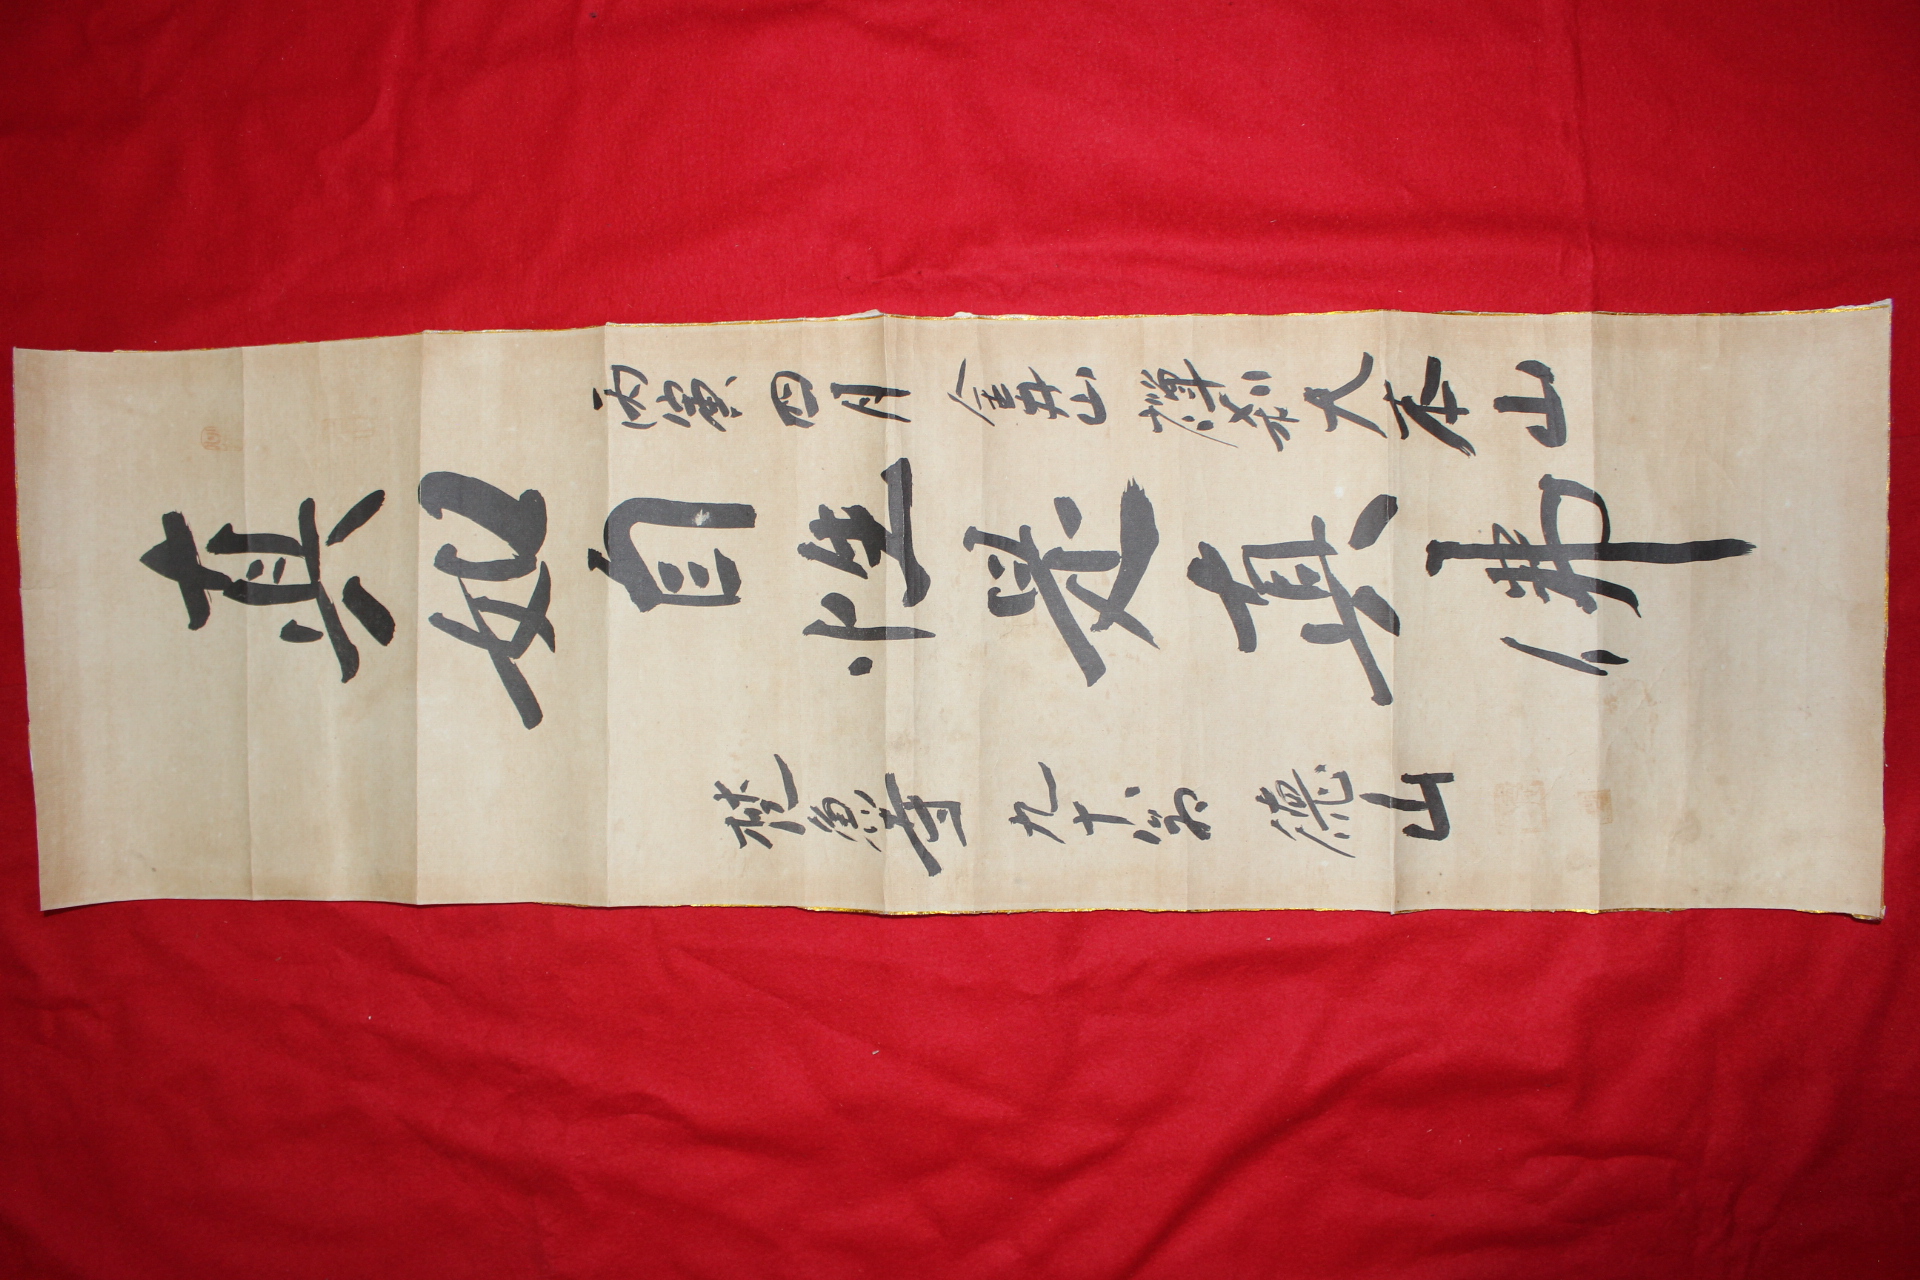 丙寅 四月 金井山 禪刹大本山
真如自性是真佛
梵魚寺 九十翁 德山